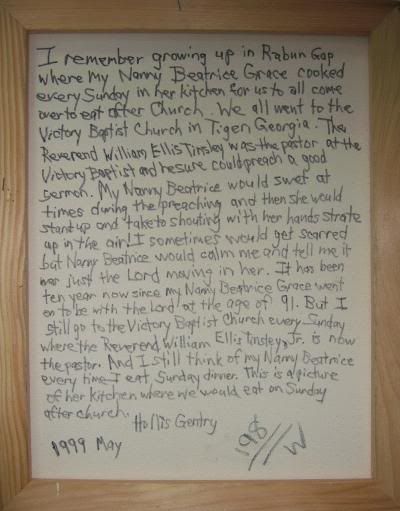 I remember growing up in Rabun Gap
where my Nanny Beatrice Grace cooked
every Sunday in her kitchen for us to all come
over to eat after Church. We all went to the
Victory Baptist Church in Tigen Georgia. The
Reverend William Ellis Tinsley was the pastor at the
Victory Baptist and he sure could preach a good
sermon. My Nanny Beatrice would swet at
times during the preaching and then she would
stand up and take to shouting with her hands strate
up in the air! I sometimes would get scarred
but Nanny Beatrice would calm me and tell me it
was just the Lord moving in her. It has been
ten year now since my Nanny Beatrice Grace went
on to be with the Lord at the age of 91. But I
still go to the Victory Baptist Church every Sunday
where the Reverend William Ellis Tinsley, Jr. is now
the pastor. And I still think of my Nanny Beatrice
every time I eat Sunday dinner. This is a picture
of her kitchen where we would eat on Sunday
after church.
Hollis Gentry
1999 May
198//W